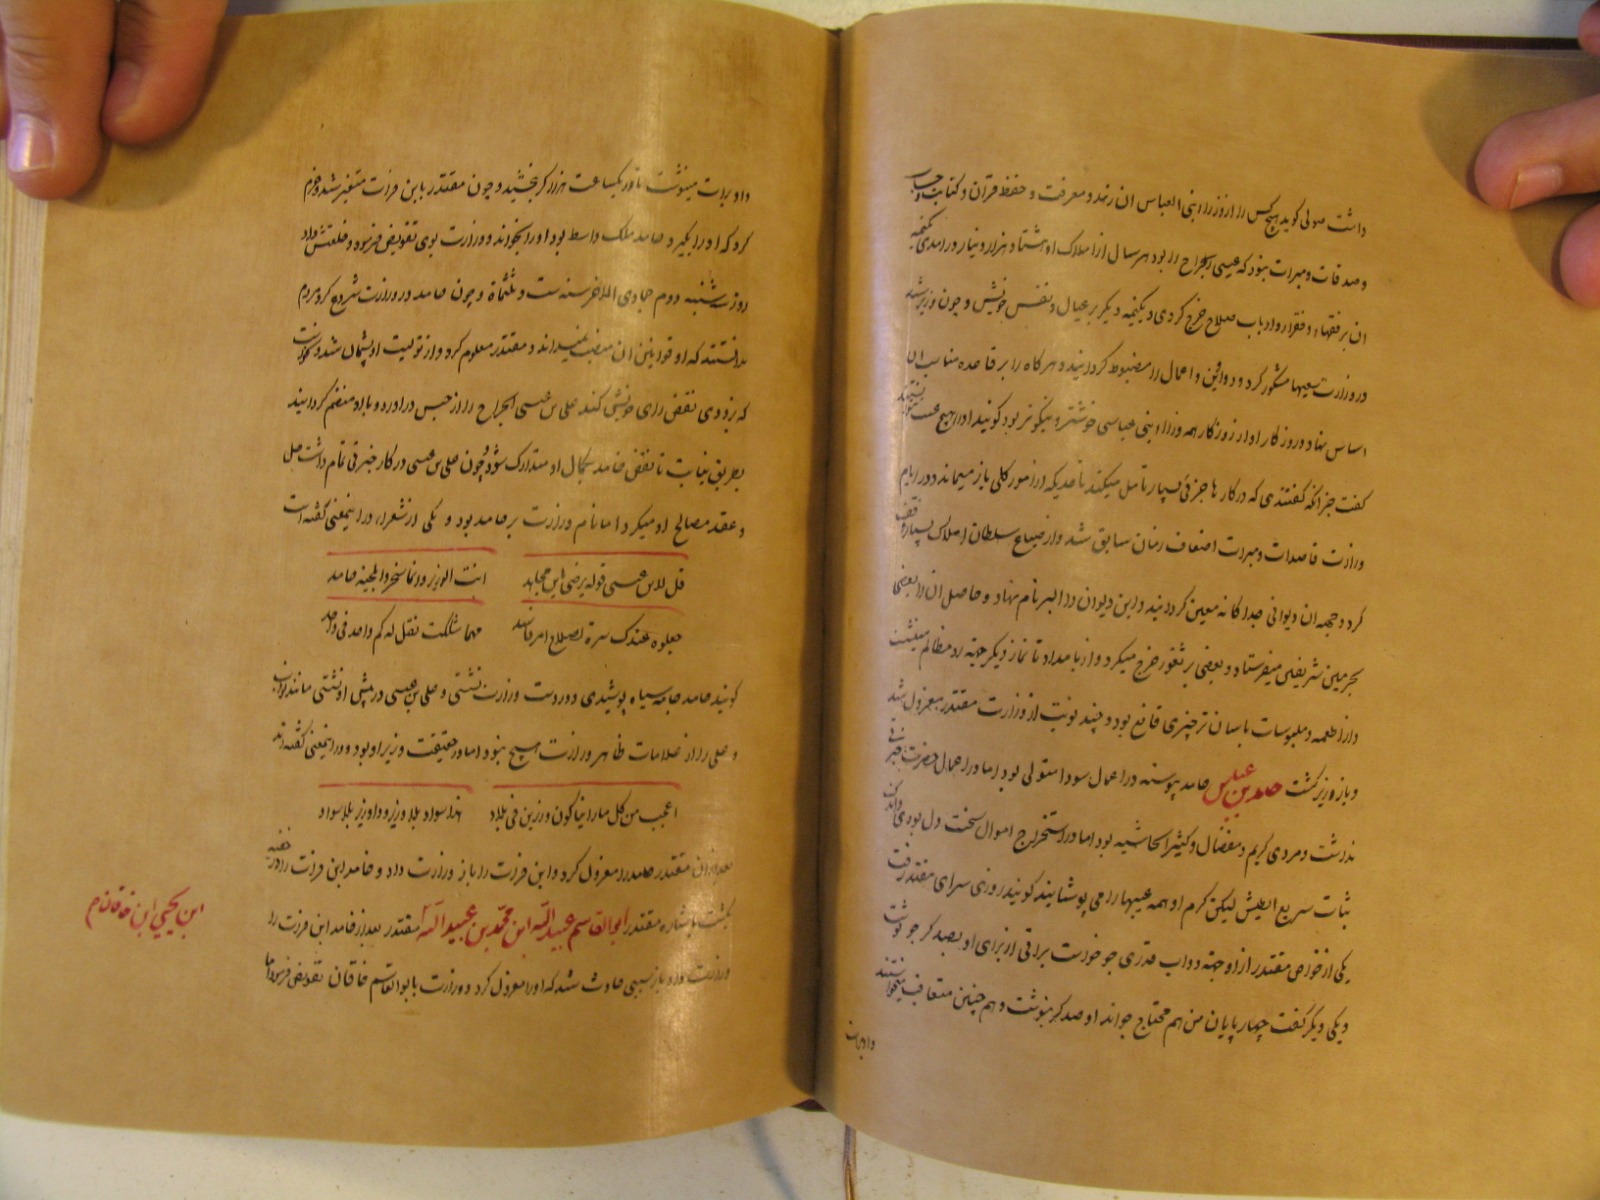 داشت صولی کوید هیچ کس را از وزراء بنی العباس ان زهد و معرفت و حفظ قران و کتابت و حساب
و صدقات و مبرات نبود که عیسی الجراح را بود هر سال از املاک او هشتاد هزار دینار درامدی یکنیمه
ان بر فقها و فقرا و ارباب صلاح خرج کردی و یکنیمه دیکر بر عیال و نفس خویش و چون وزیر شد
در وزارت سعیها مشکور کرد و دواوین و اعمال را مضبوط کردانید و هر کاه را بر قاعده مناسب ان
اساس نهاد و روزکار او از روزکار همه وزراء بنی عباسی خوشتر و نیکوتر بود کویند او را هیچ عیب نتوانستند
کفت جز انکه کفتندی که در کارها جزئی بسیار تامل میکند تا حدیکه از امور کلی باز میماند و در ایام
وزارت قاصدات و مبرات اضعاف زمان سابق شد و از ضیاع سلطان املاک بسیار وقف
کرد و جهه ان دیوانی جداکانه معین کردانید و این دیوان را البر نام نهاد و حاصل ان را بعضی
بحرمین شریفین میفرستاد و بعضی بر ثغور خرج میکرد و از بامداد تا نماز دیکر جهة رد مظالم مینشست
و از اطعمه و ملبوسات باسان ترچیزی قانع بود و چند نوبت از وزارت مقتدر معزول شد
و باز وزیر کشت حامد بن عباس حامد پیوسته در اعمال سودا متولی بود اما در اعمال حضرت خبرتی
نداشت و مردی کریم و مفضال و کثیر الحاشیه بود اما در استخراج اموال سخت دل بودی و اندک
ثبات سریع الطیش لیکن کرم او همه عیبها را می پوشانید کویند روزی سرای مقتدر رفت
یکی از خواص مقتدر از او جهة دواب قدری جو خواست براتی از برای او بصد کر جو نوشت
و یکی دیکر کفت چهارپایان من هم محتاج جواند او صد کر بنوشت و هم چنین متعاقب میخواستند
و او برات
داو برات مینوشت تا در یکساعت هزار کر بخشید و چون مقتدر با بن فرات متغیر شد و عزم
کرد که او را بکیرد حامد ملک واسط بود او را بخواند و وزارت بوی تفویض فرموه و خلعتش داد
روز سه شنبه دوم جمادی الاخر سنه ست و ثلثمائة و چون حامد در وزارت شروع کرد مردم
بدانستند که او قوانین ان منصب نمیداند و مقتدر معلوم کرد و از تولیت او پشیمان شد و نخواست
که بزودی نقض رای خویش کند علی بن عیسی الجراح را از حبس دراورد و با او منضم کردانید
بطریق نیابت تا نقض حامد بکمال او متدارک شود و چون علی بن عیسی در کار خبرتی تمام داشت حل
و عقد مصالح او میکرد اما نام وزارت بر حامد بود و یکی از شعرا در اینمعنی کفته است
قل لابن عیسی قوله یرضی بها مجاهد انت الوزیر و انما سخروا بلحیة حامد
جعلوه عندک سترة لصلاح امر فاسد مهما شککت فقل له کم واحد فی واحد
کویند حامد جامه سیاه پوشیدی و در دست وزارت نشستی و علی بن عیسی در پیش او نشستی مانند نواب
و علی را از علامات ظاهر وزارت هیچ نبود اما در حقیقت وزیر او بود و در اینمعنی کفته اند
اعجب من کل ما راینا کون وزیرین فی بلاد هذا سواد بلا وزیر و ذا وزیر بلا سواد
بعد از ان مقتدر حامد را معزول کرد و ابن فرات را باز وزارت داد و حامد ابن فرات را در خفیه
بکشت باشاره مقتدر ابو القاسم عبید الله ابن محمد بن عبید الله مقتدر بعد از حامد ابن فرات را
وزارت داد باز سببی حادث شد که او را معزول کرد و وزارت بابو القاسم خاقان تفویض فرمود اما
ابن یحیی ابن خاقان